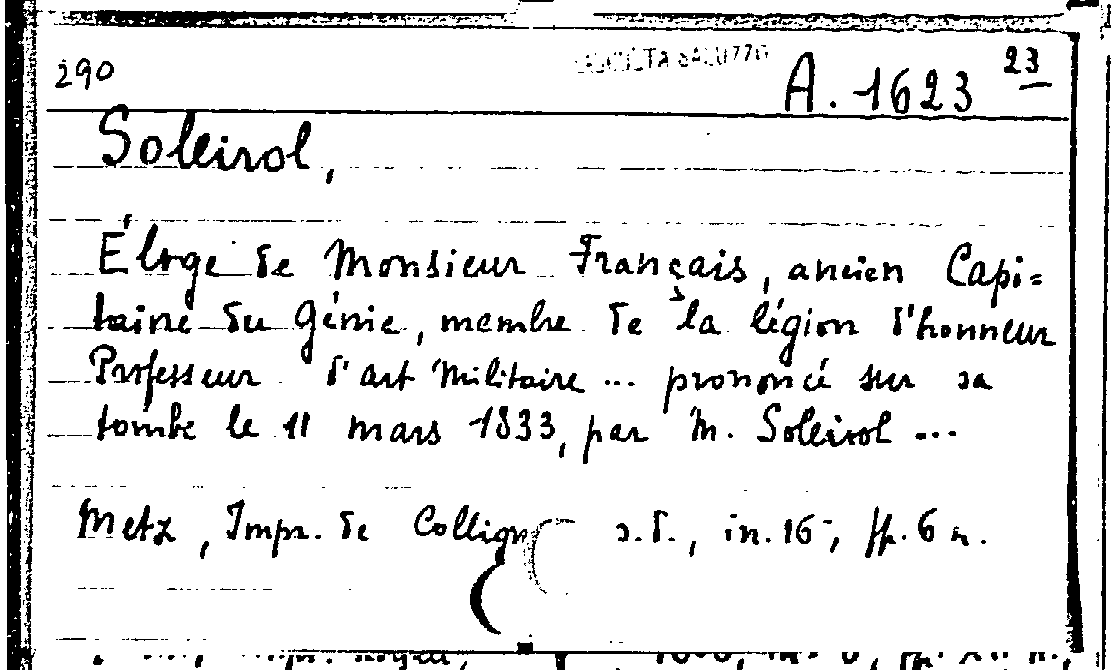 290 RACCOLTA SALUZZO A. 1623 23
Soleirol,
Éloge de Monsieur Français, ancien Capi=
taine du Génie, membre de la légion d'honneur
Professeur d'art Militaire ... prononcé sur sa
tombe le 11 mars 1833, par M. Soleirol ...
Metz, Impr. de Collign s.d., in.16°, ff. 6 n.